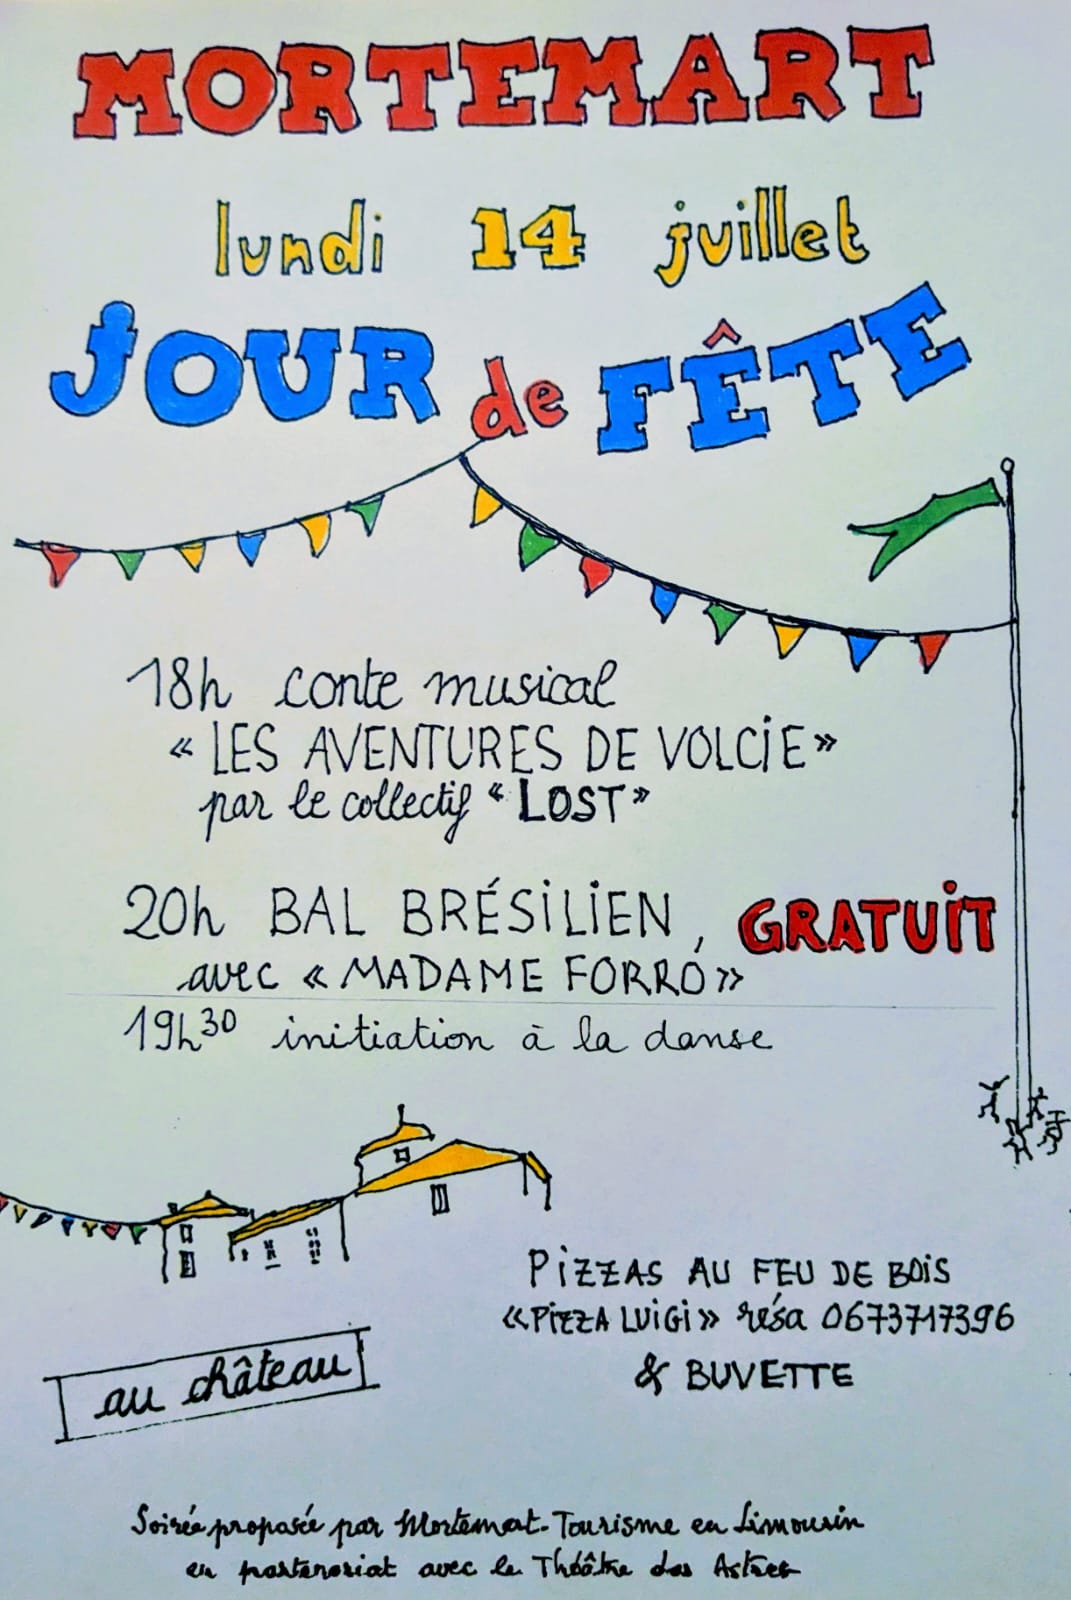 MORTEMART
lundi 14 juillet
JOUR de FÊTE
18h conte musical
« LES AVENTURES DE VOLCIE »
par le collectif « LOST »
20h BAL BRÉSILIEN, GRATUIT
avec « MADAME FORRÓ »
19h30 initiation à la danse
PIZZAS AU FEU DE BOIS
« PIZZA LUIGI » résa 0673717396
& BUVETTE
au château
Soirée proposée par Mortemart-Tourisme en Limousin
en partenariat avec le Théâtre des Astres